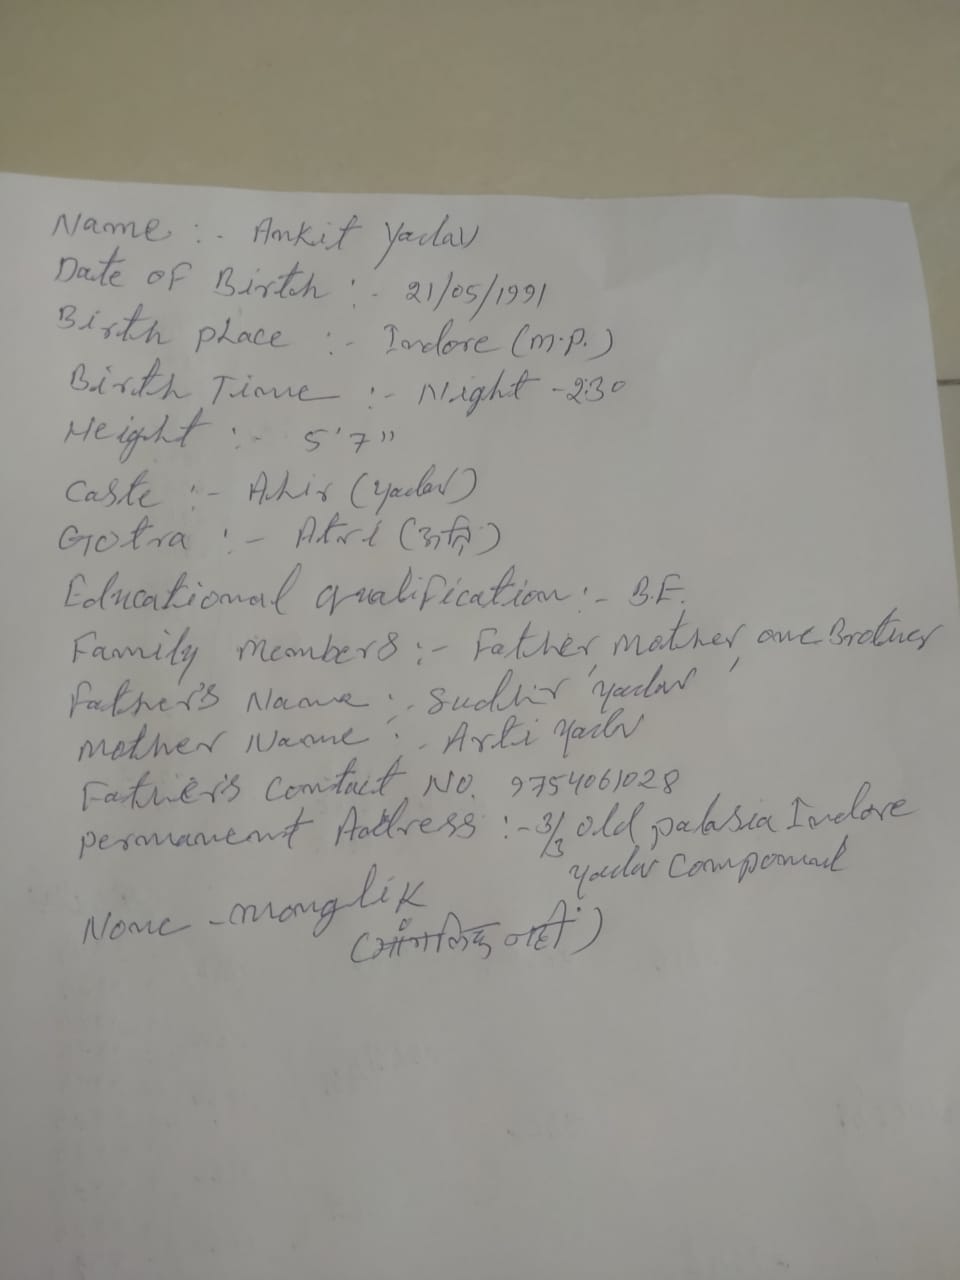 Name :- Ankit Yadav
Date of Birth :- 21/05/1991
Birth place :- Indore (m.p.)
Birth Time :- Night - 2:30
Height :- 5'7"
Caste :- Ahir (Yadav)
Gotra :- Atri (अत्रि)
Educational qualification :- B.E.
Family members :- Father, mother, one Brother
Father's Name :- Sudhir Yadav
Mother Name :- Arti Yadav
Father's Contact No. 9754061028
permanent Address :- 3/3 old palasia Indore
Yadav Compound
None - manglik
(मांगलिक नहीं)